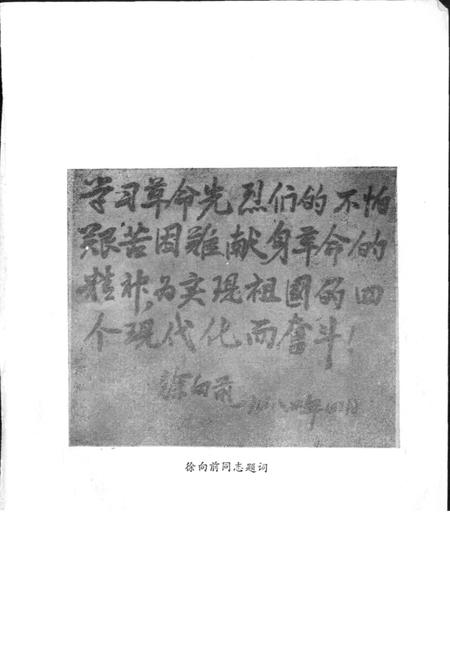 学习革命先烈们的不怕
艰苦困难献身革命的
精神，为实现祖國的四
个现代化而奋斗！
徐向前
年四月
徐向前同志题词